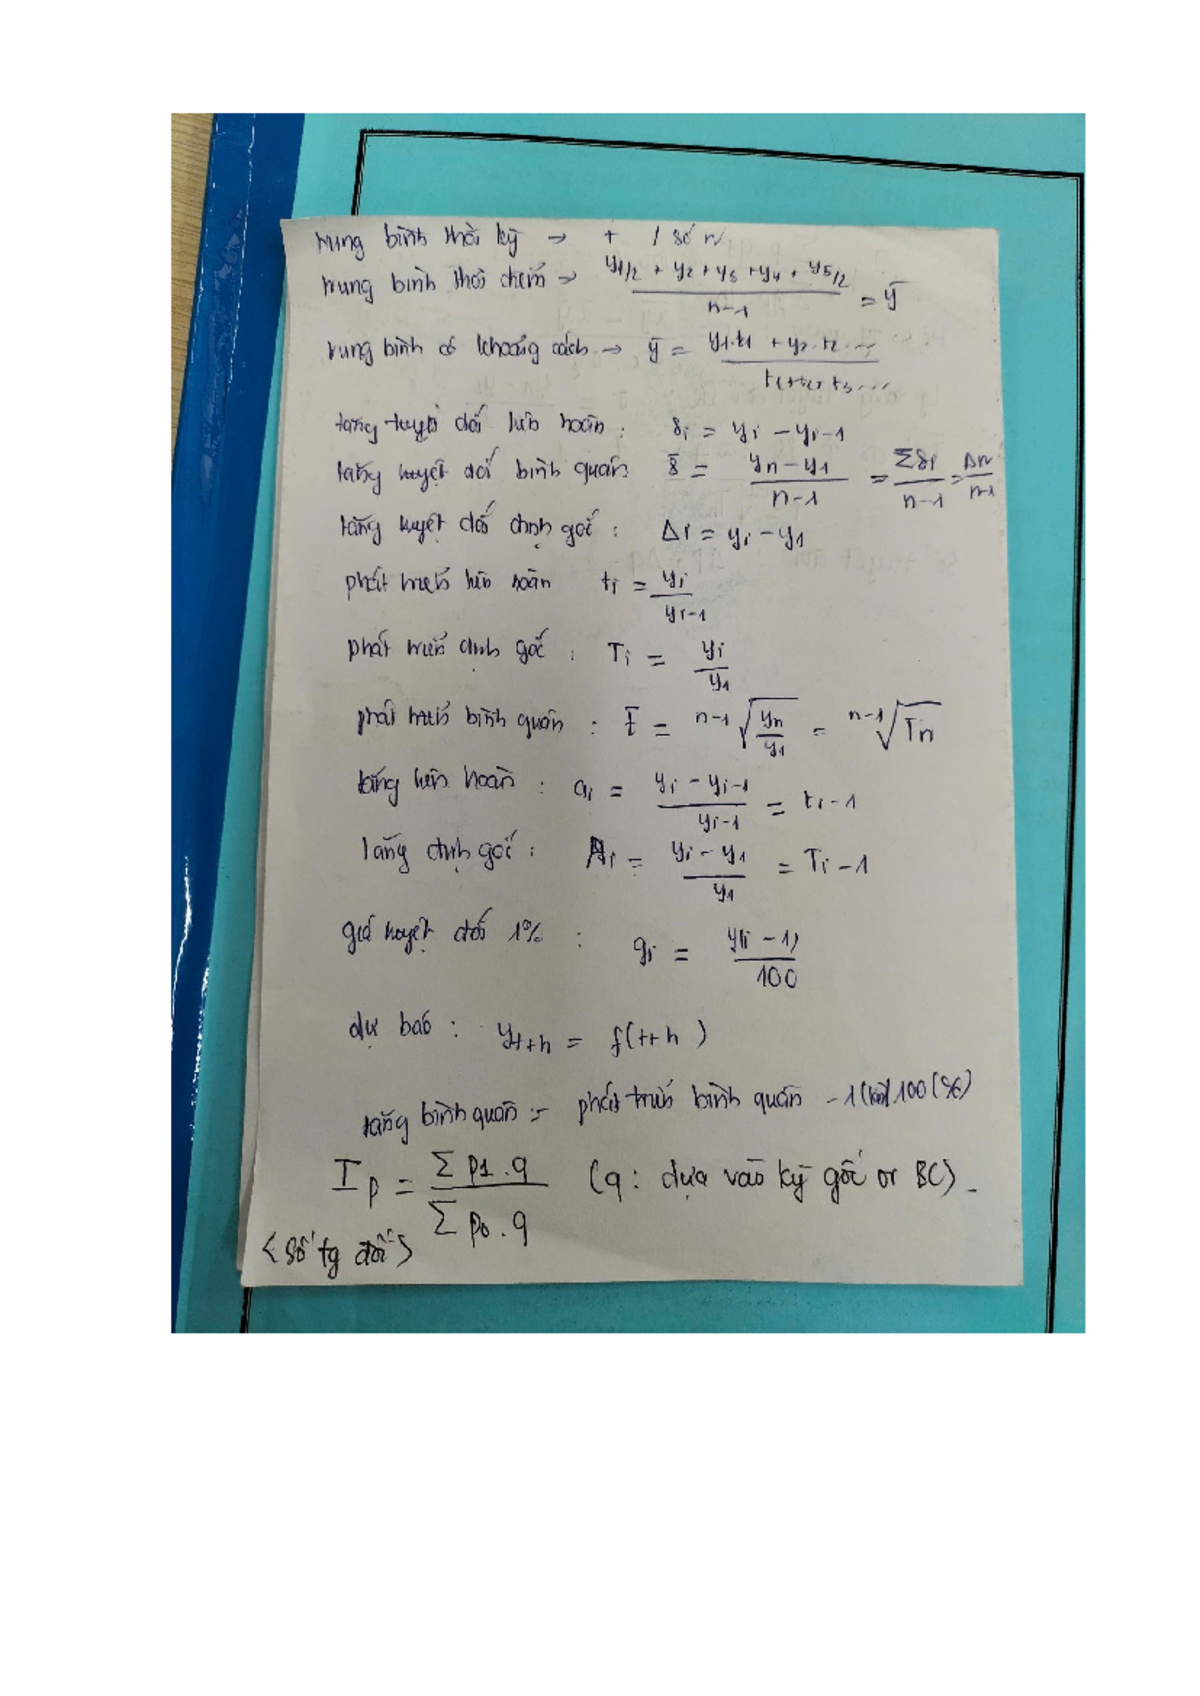 trung bình thời kỳ → + / số n
trung bình thời điểm → y1/2 + y2 + y3 + y4 + y5/2 / n-1 = ȳ
trung bình có khoảng cách → ȳ = y1.t1 + y2.t2... / t1+t2+t3....
tăng tuyệt đối liên hoàn : δi = yi - yi-1
tăng tuyệt đối bình quân: δ̄ = yn - y1 / n-1 = Σδi / n-1 = Δn / n-1
tăng tuyệt đối định gốc : Δi = yi - y1
phát triển liên hoàn ti = yi / yi-1
phát triển định gốc : Ti = yi / y1
phát triển bình quân : t̄ = n-1√(yn / y1) = n-1√Tn
tăng liên hoàn : ai = yi - yi-1 / yi-1 = ti - 1
tăng định gốc : Ai = yi - y1 / y1 = Ti - 1
giá tuyệt đối 1% : gi = y(i - 1) / 100
dự báo : yt+h = f(t+h)
tăng bình quân = phát triển bình quân - 1 (lần) 100 (%)
Ip = Σ p1.q / Σ p0.q (q: dựa vào kỳ gốc or BC).
<số tg đối>